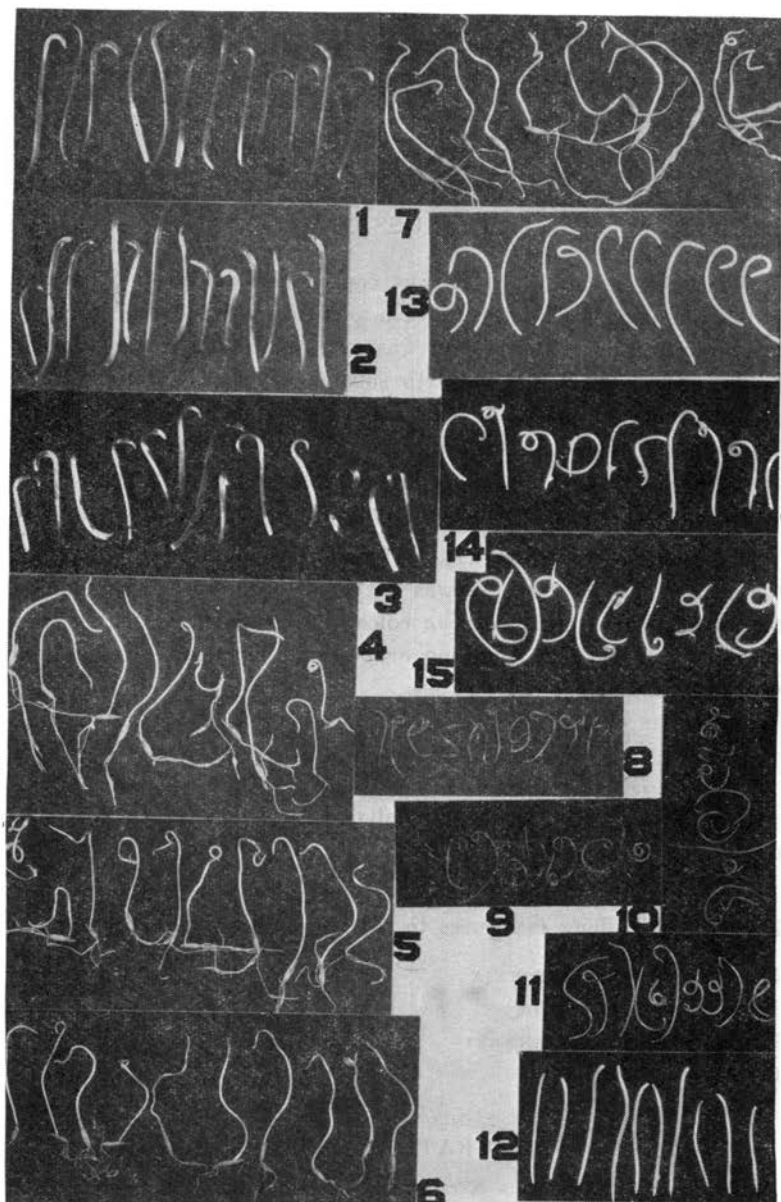 1 7
13
2
14
3
4
15
8
9 10
5
11
12
6